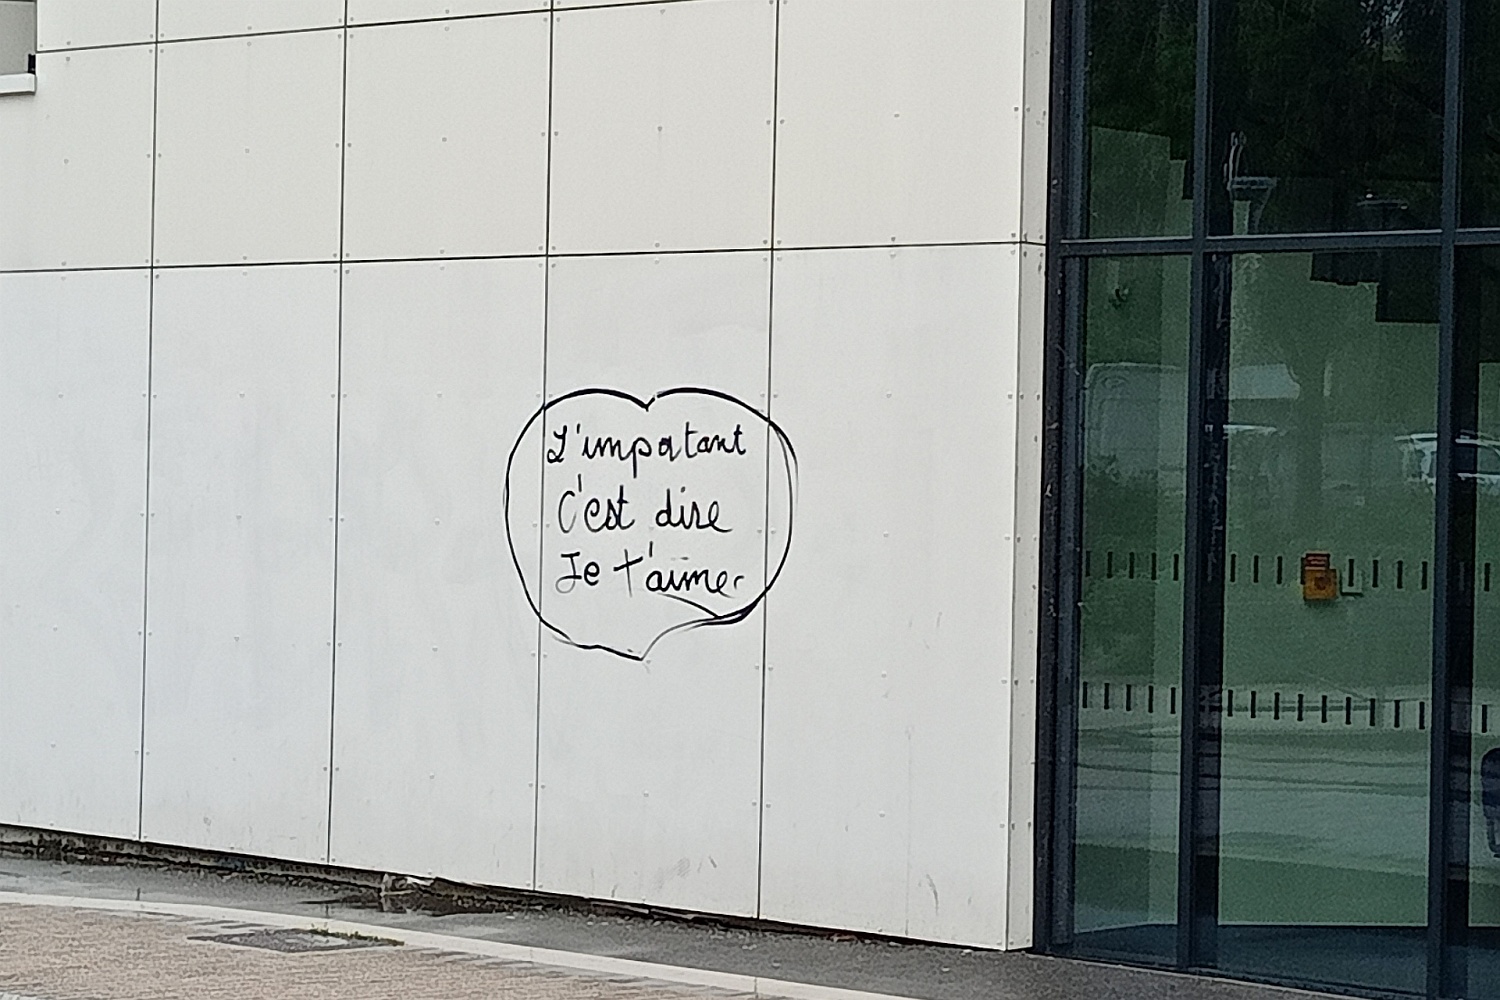 L'important
C'est dire
Je t'aime